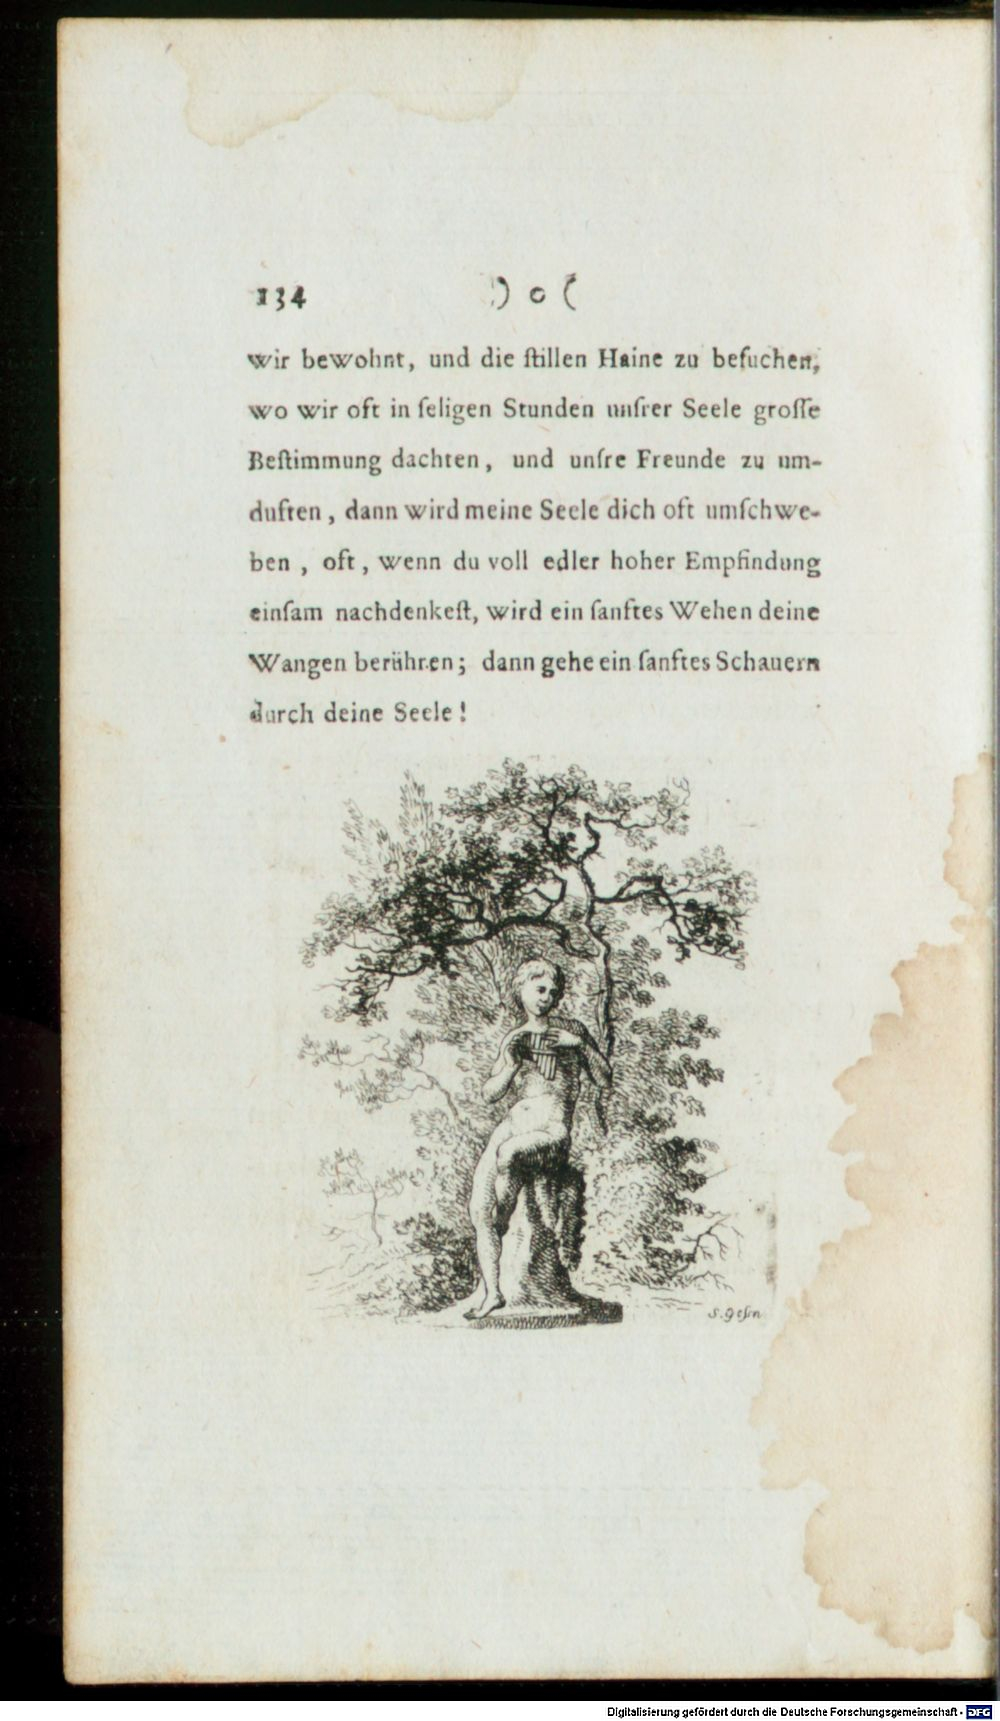 134 ) o (
wir bewohnt, und die ſtillen Haine zu beſuchen,
wo wir oft in ſeligen Stunden unſrer Seele groſſe
Beſtimmung dachten, und unſre Freunde zu um-
duften, dann wird meine Seele dich oft umſchwe-
ben, oft, wenn du voll edler hoher Empfindung
einſam nachdenkeſt, wird ein ſanftes Wehen deine
Wangen berühren; dann gehe ein ſanftes Schauern
durch deine Seele!
S. Geſn
Digitalisierung gefördert durch die Deutsche Forschungsgemeinschaft - DFG